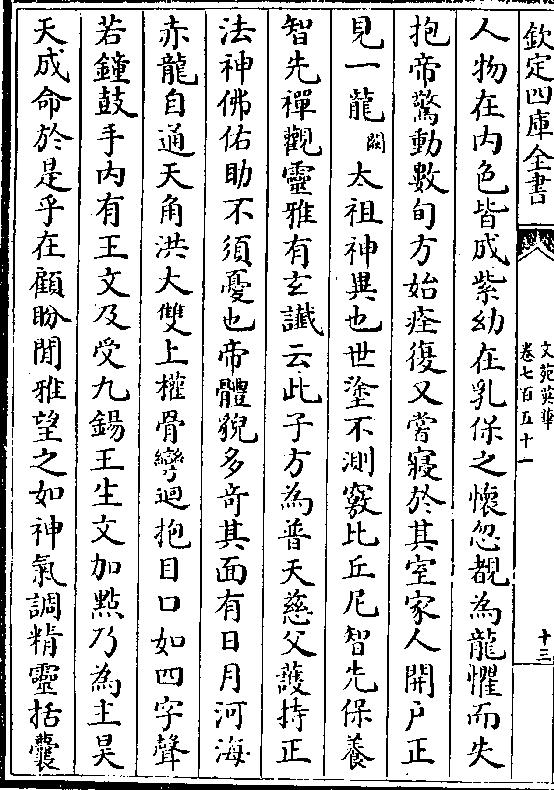 欽定四庫全書
文苑英華
卷七百五十一
十三
人物在内色皆成紫幼在乳保之懷忽覩為龍懼而失
抱帝驚動數旬方始痊復又嘗寝於其室家人開户正
見一龍闕太祖神異也世塗不測竅比丘尼智先保養
智先禪觀靈雅有玄讖云此子方為普天慈父護持正
法神佛佑助不須憂也帝體貌多竒其面有日月河海
赤龍自通天角洪大雙上權骨彎迴抱目口如四字聲
若鐘鼓手内有王文及受九錫王生文加點乃為主昊
天成命於是乎在顧盼閒雅望之如神氣調精靈括囊